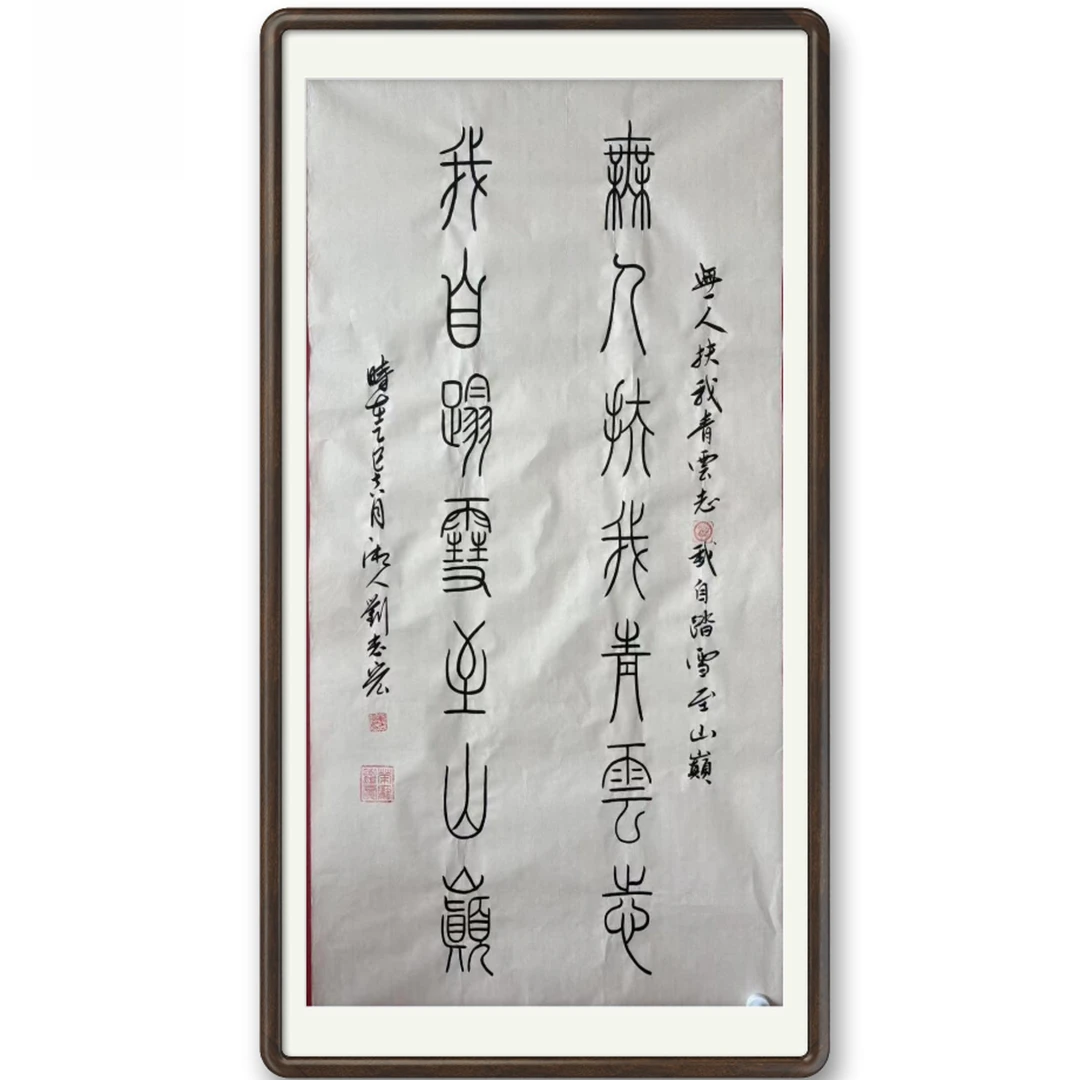 無人扶我青雲志我自踏雪至山巔
無人扶我青雲志
我自蹋雪至山巔
時在乙巳六月湘人劉志宏